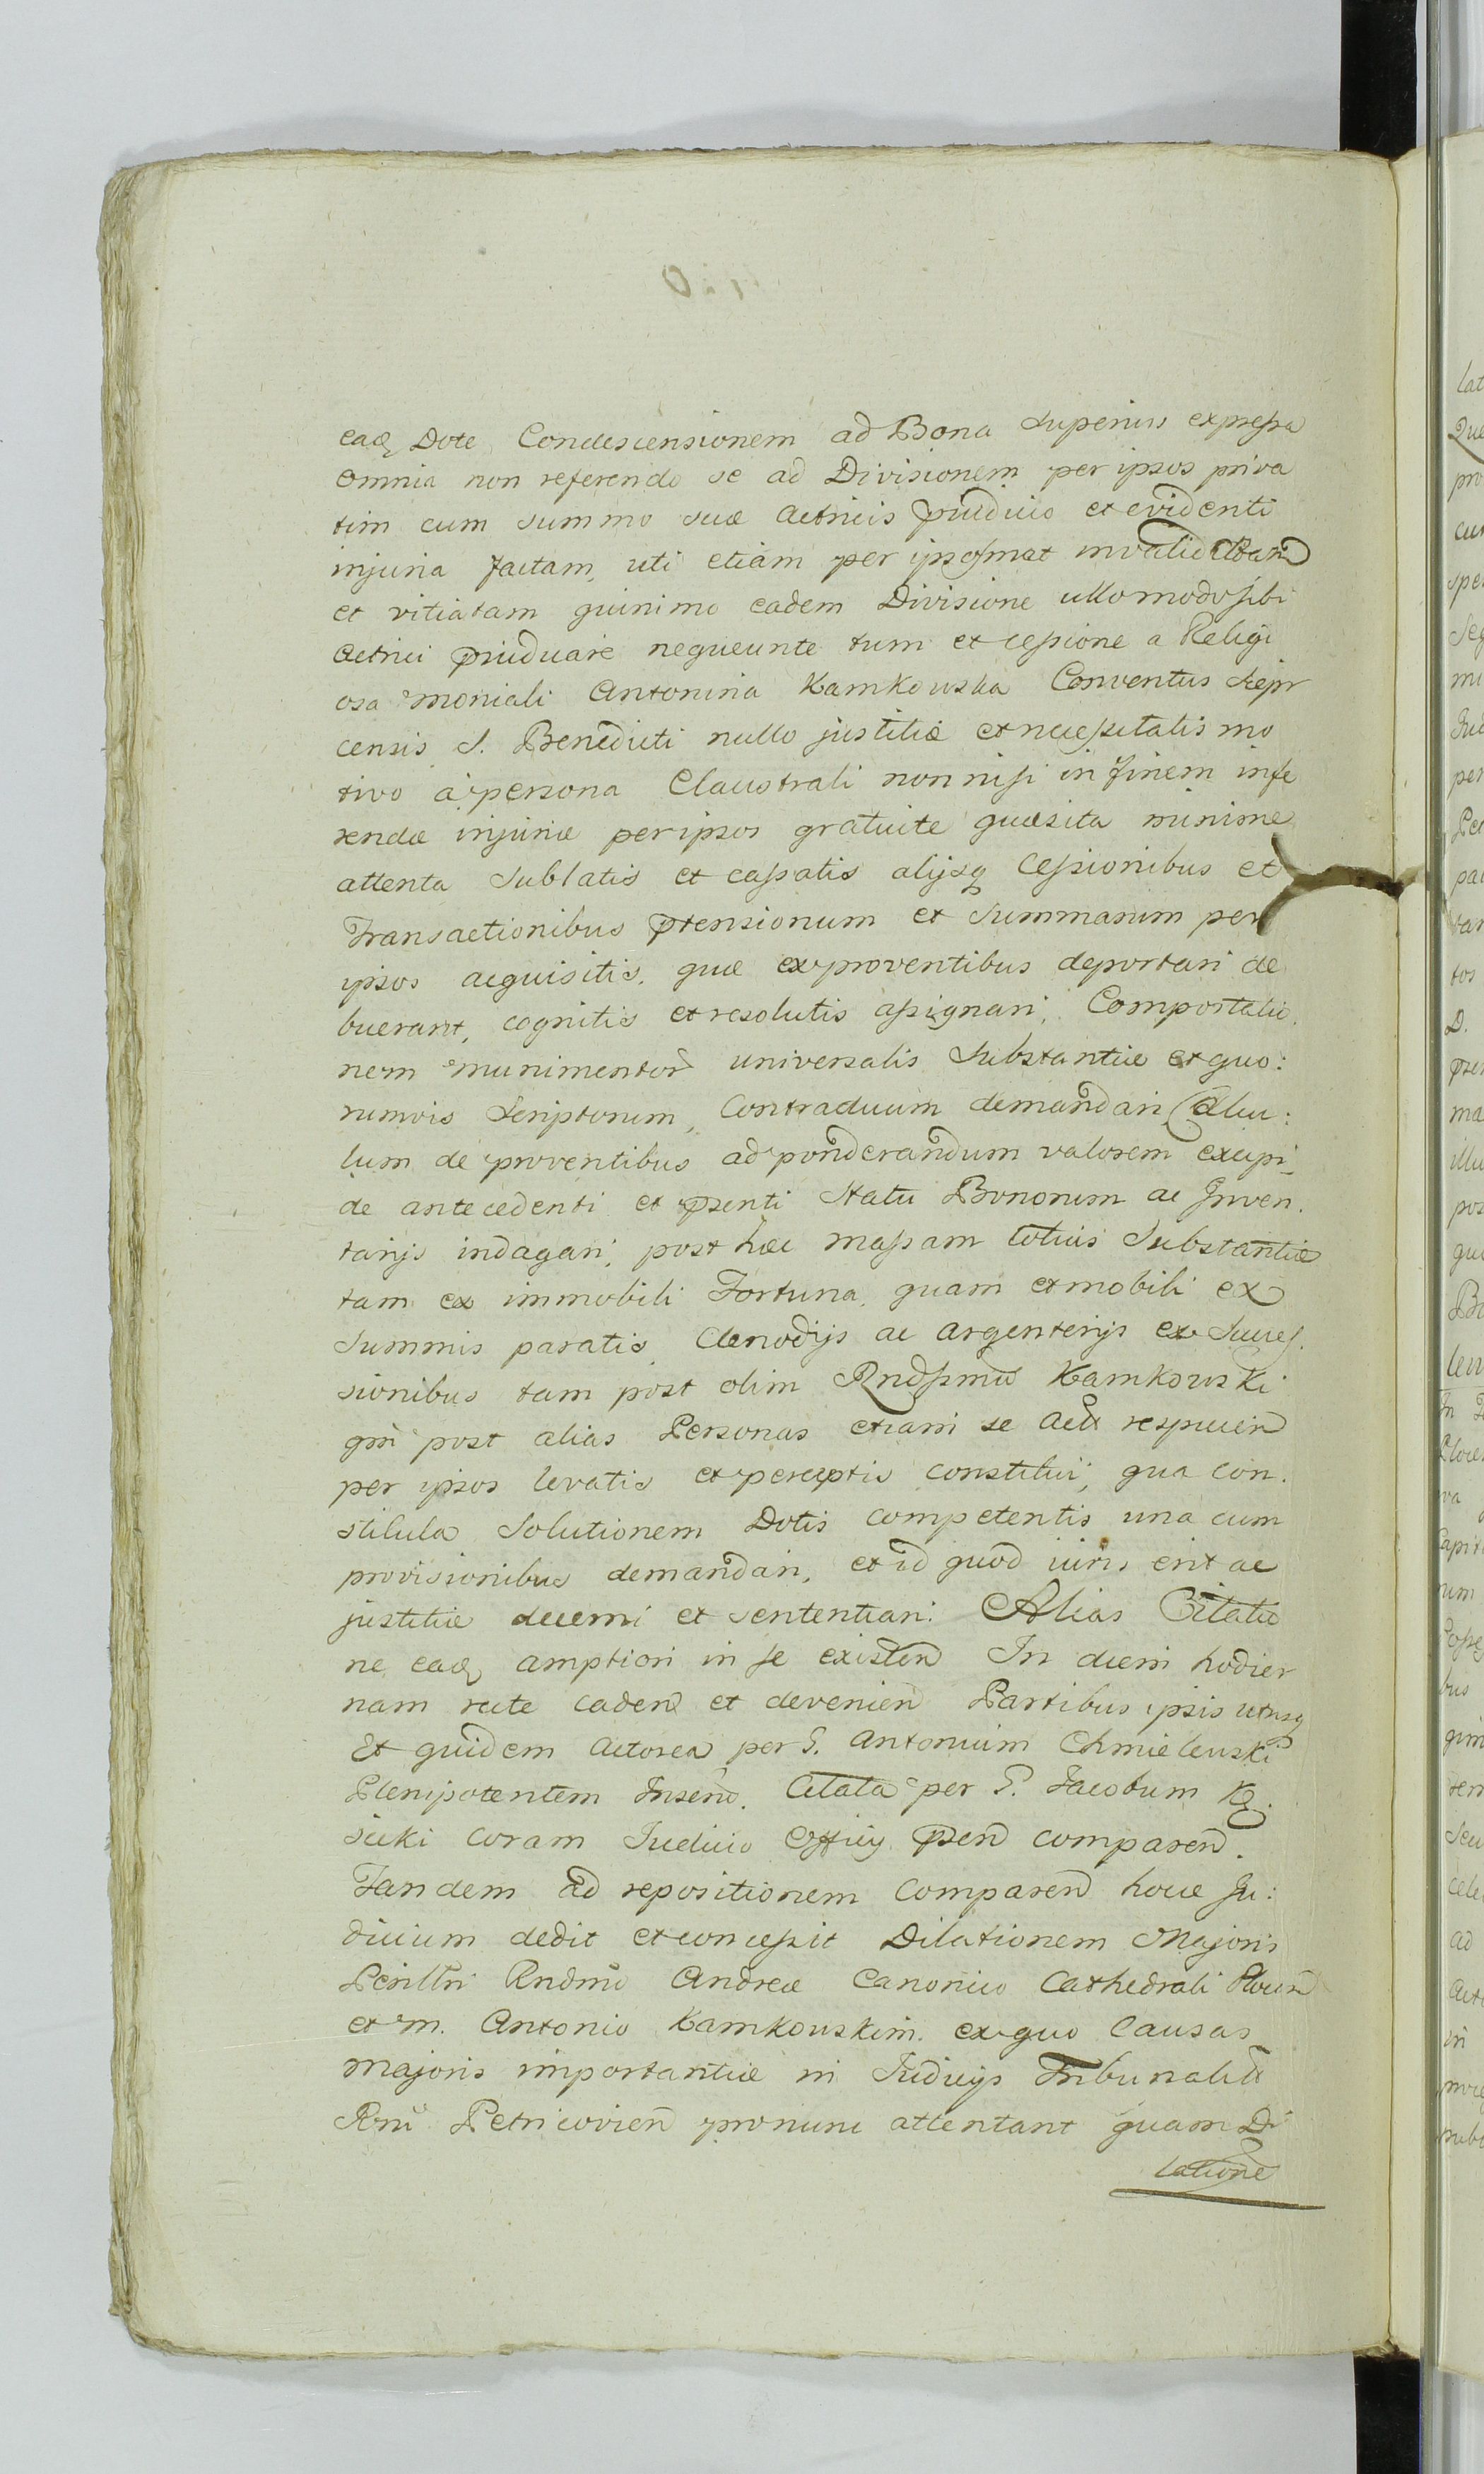 eaq Dote Condescensionem ad Bona Superius expressa
omnia non referendo se ad Divisionem per ipsos priva
tim cum summo suæ actricis pñidicio et evidenti
injuria factam, uti etiam per ipsosmet invalidatam
et vitiatam quinimo eadem Divisione ullomodo sibi
Actrici pñiudicare nequeunte tum et cessione a Religi
osa moniali Antonina Kamkowska Conventus Sierp
censis S. Benedicti nullo justitiæ et necessitatis mo
tivo a persona Claustrali non nisi in finem infe
rendæ injuriæ per ipsos gratuite quæsita minime
attenta Sublatis et cassatis alijsq Cessionibus et
Transactionibus ptensionum et Summarum per
ipsos acquisitis, quæ ex proventibus deportari de
buerant, cognitis et resolutis assignari, Comportatio
nem munimentor universalis Substantiæ et quo:
rumvis Scriptorum, Contraductum demandari, Calcu:
lum de proventibus ad ponderandum valorem excipi
de antecedenti et psenti Statu Bonorum ac Inven
tarijs indagari, post hæc massam totius Substantiæ
tam ex immobili Fortuna, quam et mobili ex
Summis paratis, Clenodijs ac argenterijs ex Succes
sionibus tam post olim Rndssmũ Kamkowski
qm post alias Personas etiam se Act respicien
per ipsos levatis et perceptis constitui, qua con
stituta Solutionem Dotis competentis una cum
provisionibus demandari, et id quod iuris erit ac
justitiæ decerni et sententiari. Alias Citatio
ne eaq amptiori in se existen In diem hodier
nam recte caden et devenien Partibus ipsis utrisq
Et quidem Actorea per G. Antonium Chmielewski
Plenipotentem Insen. Citata per G. Jacobum
sicki coram Judicio Officij psen comparen.
Tandem ad repositionem comparen hocce Ju:
dicium dedit et concessit Dilationem Majoris
Perilltri Rndmo Andreæ Canonico Cathedrali Plocen
et m. Antonio Kamkowskim. ex quo Causas
majoris importantiæ in Judicijs Tribunalit
Rni Petricovien pronunc attentant quam Di
latione